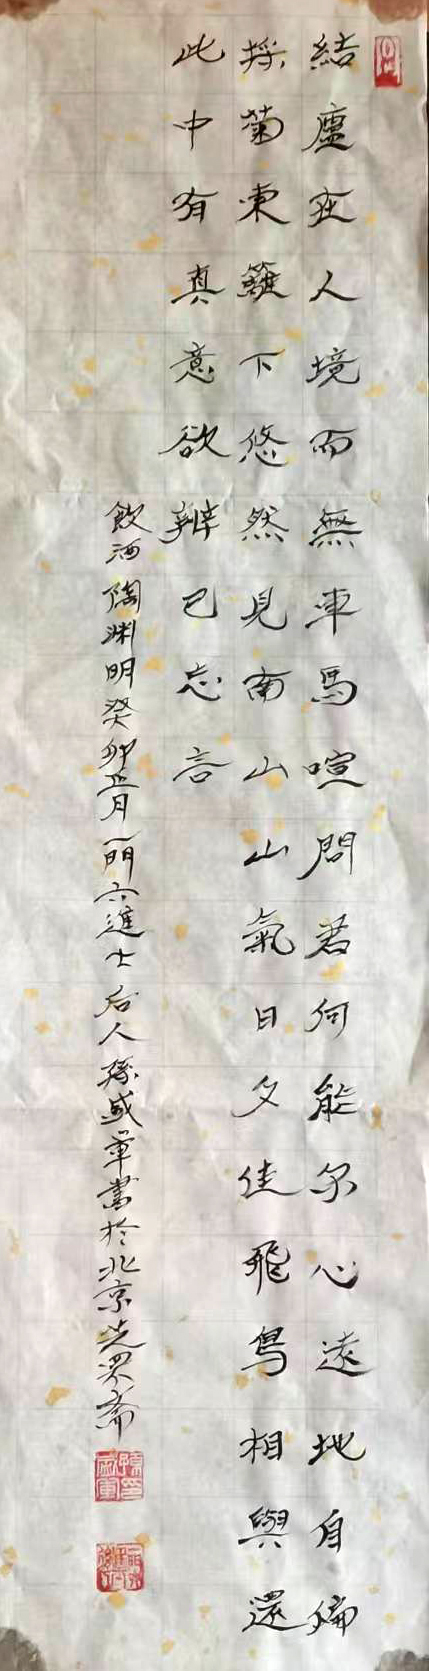 結廬在人境而無車馬喧問君何能尔心遠地自偏
採菊東籬下悠然見南山山氣日夕佳飛鳥相與還
此中有真意欲辨已忘言
飲酒陶渊明癸卯正月一門六進士后人孫盛軍書於北京